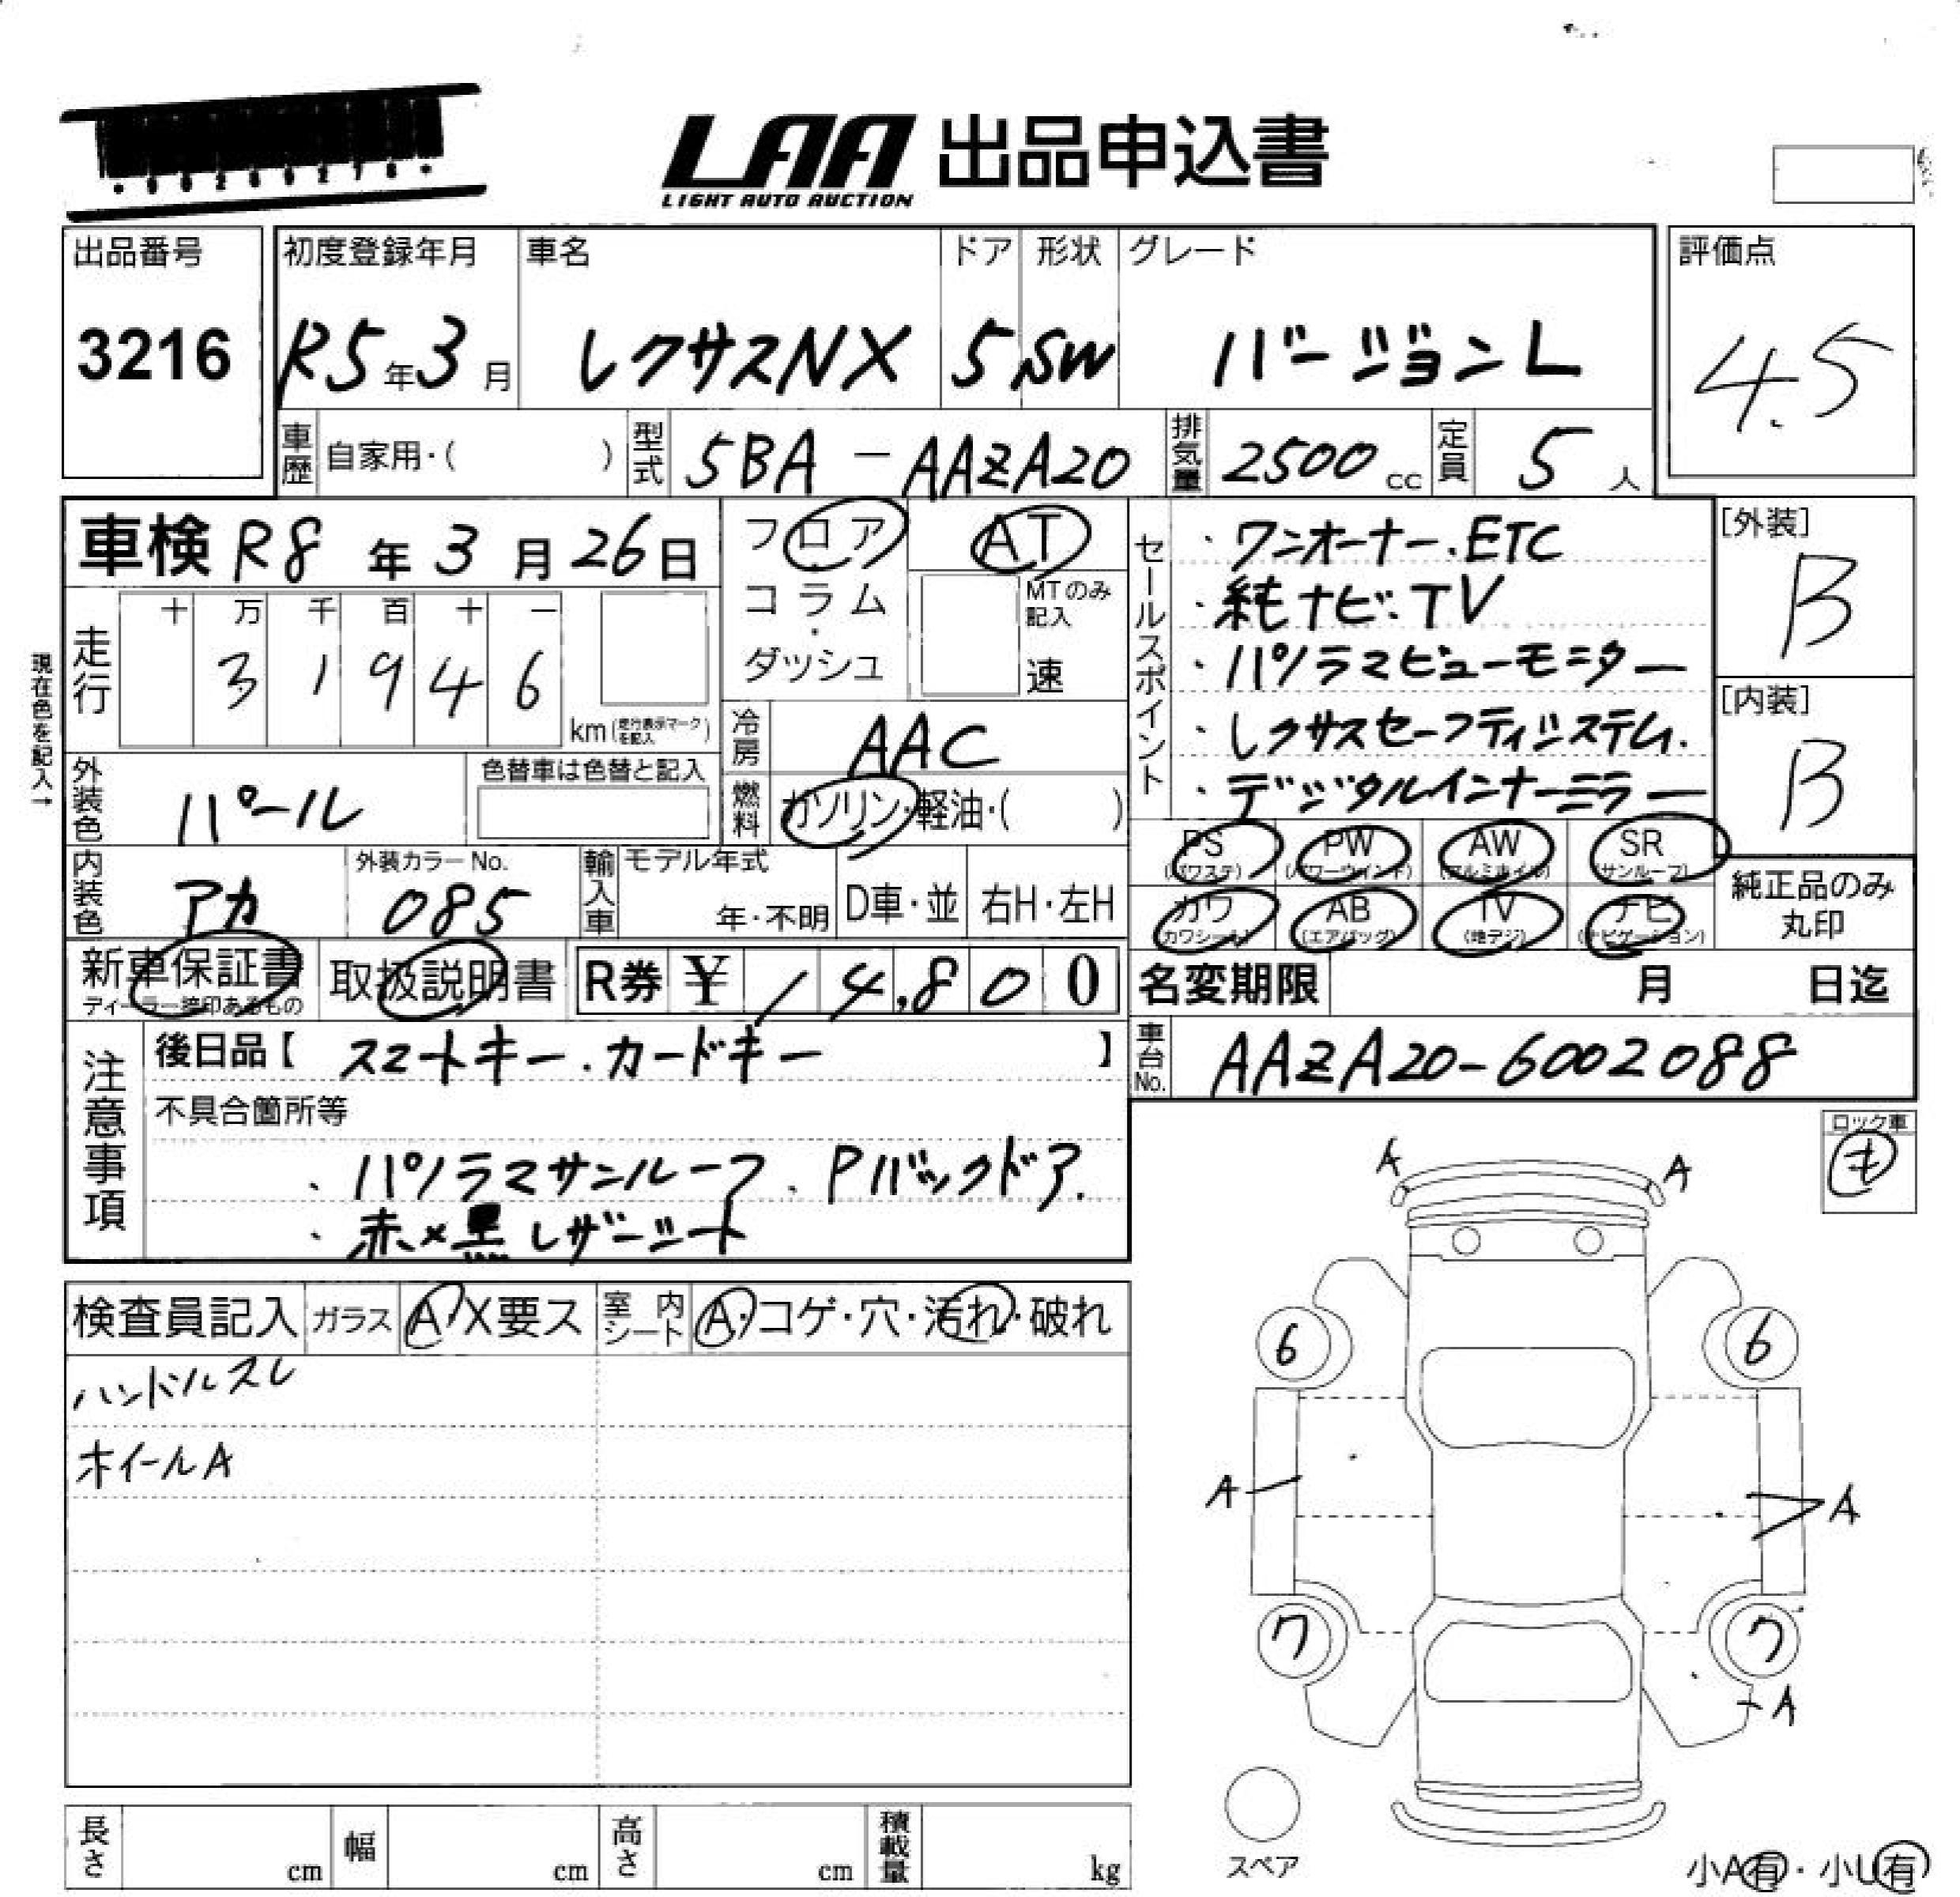 LAA 出品申込書
LIGHT AUTO AUCTION
出品番号
3216
初度登録年月
R5年3月
車名
レクサスNX
ドア
5
形状
SW
グレード
バージョンL
評価点
4.5
車歴 自家用・( )
型式 5BA-AAZA20
排気量 2500cc
定員 5人
車検 R8年3月26日
フロア・コラム・ダッシュ
AT
MTのみ記入
速
セールスポイント
・ワンオーナー.ETC
・純ナビ.TV
・パノラマビューモニター
・レクサスセーフティシステム.
・デジタルインナーミラー
[外装]
B
[内装]
B
現在色を記入→
走行
十 万 千 百 十 一
3 1 9 4 6
km(走行表示マークを記入)
冷房 AAC
燃料 ガソリン・軽油・( )
外装色 パール
色替車は色替と記入
内装色 アカ
外装カラーNo.
085
輸入車 モデル年式
年・不明
D車・並
右H・左H
PS(パワステ) PW(パワーウインド) AW(アルミホイル) SR(サンルーフ)
カワ(カワシート) AB(エアバッグ) TV(地デジ) ナビ(ナビゲーション)
純正品のみ丸印
新車保証書
ディーラー捺印あるもの
取扱説明書
R券 ¥ 14,800
名変期限 月 日迄
車台No. AAZA20-6002088
注意事項
後日品【 スマートキー.カードキー 】
不具合箇所等
・パノラマサンルーフ.Pバックドア.
・赤×黒レザーシート
ロック車
キ
検査員記入
ガラス A・X要ス
室内シート A・コゲ・穴・汚れ・破れ
ハンドルスレ
ホイールA
A A
6 6
A A
7 7
A
スペア
小A有・小U有
長さ cm
幅 cm
高さ cm
積載量 kg